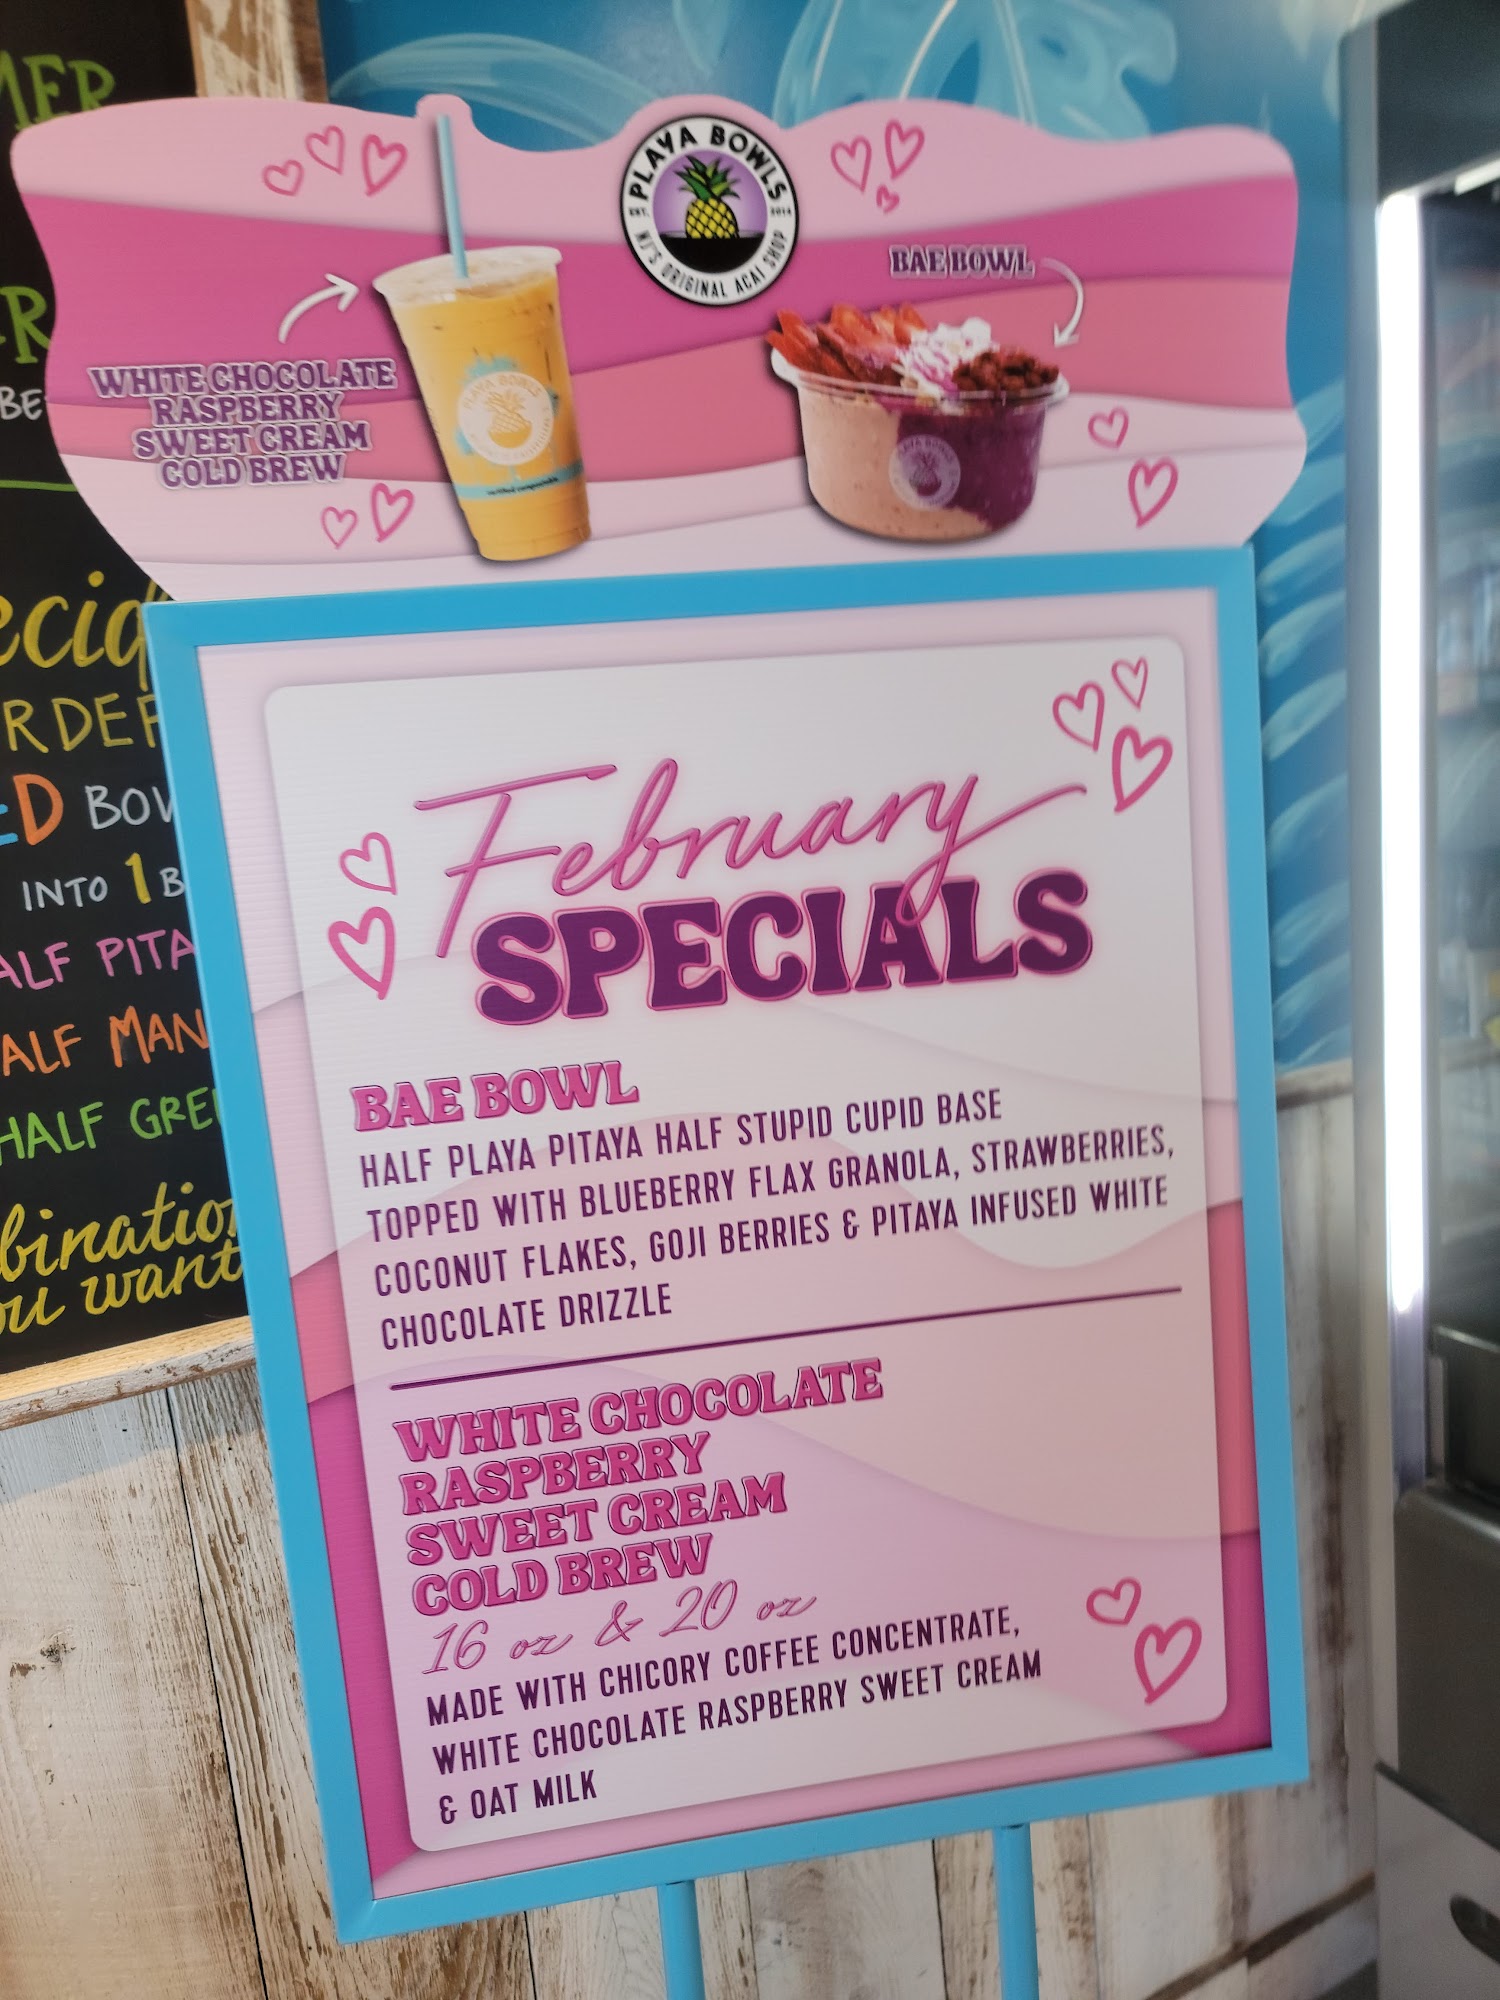 PLAYA BOWLS
EST. 2014
NJ'S ORIGINAL ACAI SHOP
WHITE CHOCOLATE
RASPBERRY
SWEET CREAM
COLD BREW
PLAYA BOWLS
BAE BOWL
February
SPECIALS
BAE BOWL
HALF PLAYA PITAYA HALF STUPID CUPID BASE
TOPPED WITH BLUEBERRY FLAX GRANOLA, STRAWBERRIES,
COCONUT FLAKES, GOJI BERRIES & PITAYA INFUSED WHITE
CHOCOLATE DRIZZLE
WHITE CHOCOLATE
RASPBERRY
SWEET CREAM
COLD BREW
16 oz & 20 oz
MADE WITH CHICORY COFFEE CONCENTRATE,
WHITE CHOCOLATE RASPBERRY SWEET CREAM
& OAT MILK
INTO 1 B
ALF PITA
ALF MAN
HALF GREE
bination
ou want